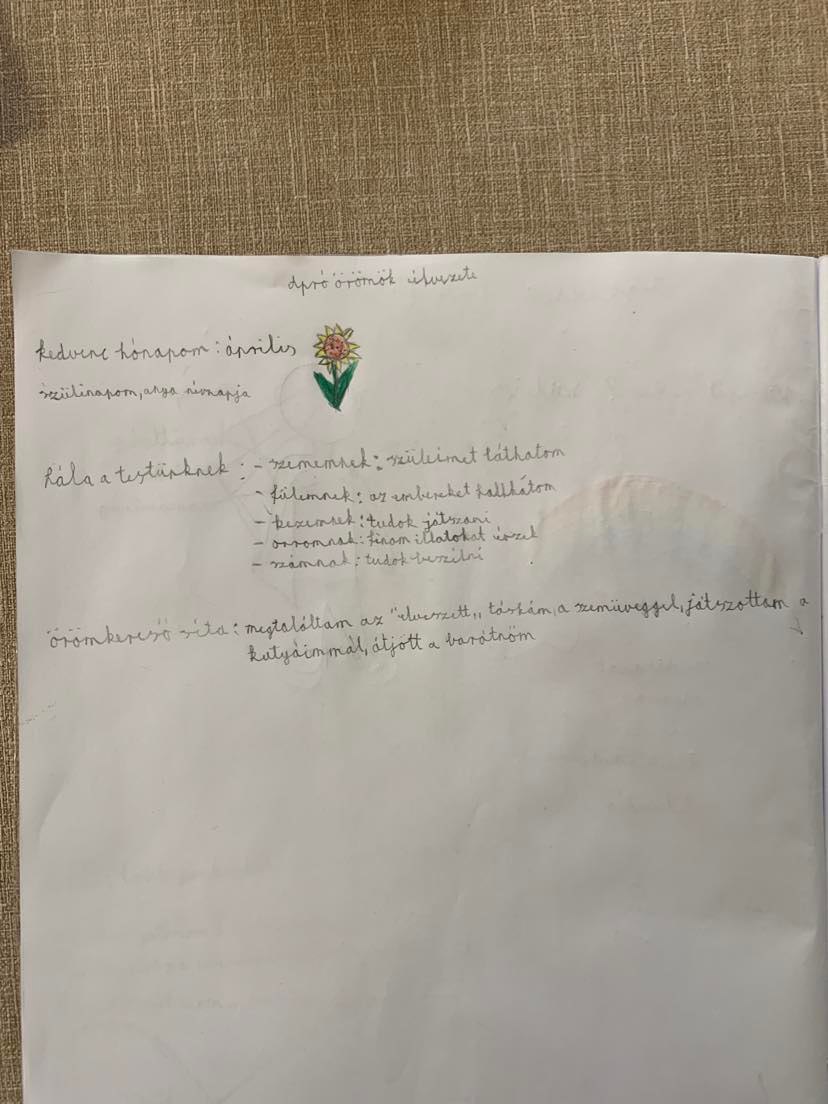 apró örömök élvezete
kedvenc hónapom: április
szülinapom, anya névnapja
hála a testünknek: - szememnek: szüleimet láthatom
- fülemnek: az embereket hallhatom
- kezemnek: tudok játszani
- orromnak: finom illatokat érzek
- számnak: tudok beszélni
örömkereső séta: megtaláltam az "elveszett„ táskám, a szemüveggel, játszottam a
kutyáimmal, átjött a barátnőm